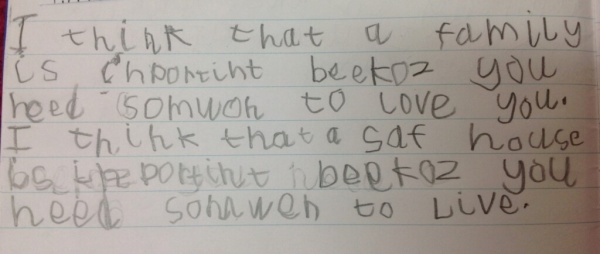 I think that a family
is inportint beekoz you
need somwon to love you.
I think that a saf house
is inportint beekoz you
need somwen to Live.